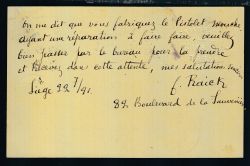 On me dit que vous fabriquez le Pistolet
ayant une réparation à faire faire, veuillez
bien passer par le bureau pour la prendre
et Recevez dans cette attente, mes salutations
Liège 22 7/91.
22, Boulevard de la Sauvenière